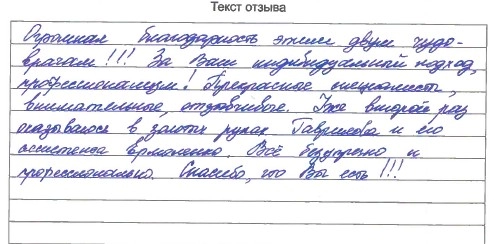 Текст отзыва
Огромная благодарность этим двум чудо-
врачам!!! За Ваш индивидуальный подход,
профессионализм! Прекрасные специалисты,
внимательные, отзывчивые. Уже второй раз
оказываюсь в золотых руках Гаврилова и его
ассистента Ермоленко. Всё безупречно и
профессионально. Спасибо, что Вы есть!!!